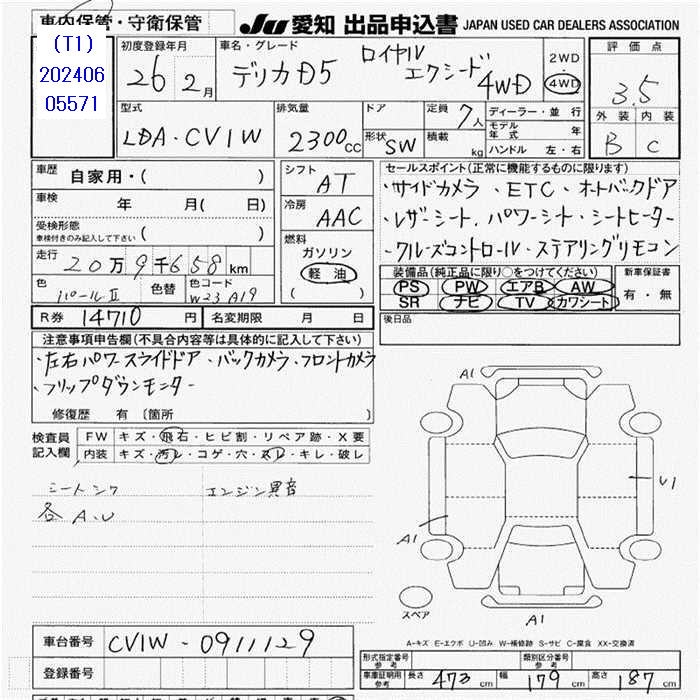 車内保管・守衛保管
JU 愛知 出品申込書 JAPAN USED CAR DEALERS ASSOCIATION
(T1)
202406
05571
初度登録年月 26 2月
車名・グレード デリカD5 ロイヤル エクシード 4WD
2WD
4WD
評価点 3.5
外装 内装
B C
型式 LDA・CV1W
排気量 2300cc
ドア
形状 SW
定員 7人
積載 kg
ディーラー・並行
モデル年式 年
ハンドル 左・右
車歴 自家用・( )
車検 年 月( 日)
受検形態
車検付きのみ記入して下さい ( )
走行 20万9千658km
色 パールⅡ 色替 色コード W23 A19
シフト AT
冷房 AAC
燃料
ガソリン
軽油
( )
セールスポイント(正常に機能するものに限ります)
・サイドカメラ、ETC、オートバックドア
・レザーシート、パワーシート・シートヒーター
・クルーズコントロール・ステアリングリモコン
装備品(純正品に限り○をつけてください) 新車保証書
PS PW エアB AW 有・無
SR ナビ TV カワシート
R券 14710円 名変期限 月 日
後日品
注意事項申告欄(不具合内容等は具体的に記入して下さい)
・左右パワースライドドア、バックカメラ、フロントカメラ
・フリップダウンモニター
修復歴 有 〔箇所 〕
検査員記入欄
FW キズ・飛石・ヒビ割・リペア跡・X要
内装 キズ・汚レ・コゲ・穴・スレ・キレ・破レ
シートシワ エンジン異音
各A.U
A1
U1
A1
スペア
A1
A-キズ E-エクボ U-凹み W-補修跡 S-サビ C-腐食 XX-交換済
車台番号 CV1W-0911129
登録番号
形式指定番号 参考 類別区分番号 参考
車庫証明用 参考 長さ 473cm 幅 179cm 高さ 187cm